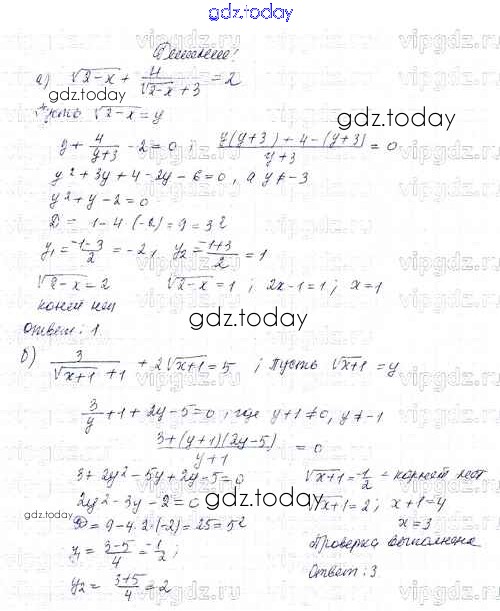 gdz.today
Решение:
а) √2-x + 4/(√2-x + 3) = 2
gdz.today
Пусть √2-x = y
y + 4/(y+3) - 2 = 0 ; (y(y+3) + 4 - (y+3))/(y+3) = 0
y² + 3y + 4 - 2y - 6 = 0, а y ≠ -3
y² + y - 2 = 0
D = 1 - 4·(-2) = 9 = 3²
y₁ = (-1-3)/2 = -2, y₂ = (-1+3)/2 = 1
√2-x = 2 √2-x = 1 ; 2x-1 = 1 ; x = 1
корней нет
gdz.today
Ответ: 1.
б) 3/(√x+1 + 1) + 2√x+1 = 5 ; пусть √x+1 = y
3/y + 1 + 2y - 5 = 0, где y+1 ≠ 0, y ≠ -1
(3 + (y+1)(2y-5))/(y+1) = 0
gdz.today
3 + 2y² - 5y + 2y - 5 = 0 √x+1 = -1/2 - корней нет
2y² - 3y - 2 = 0 √x+1 = 2 ; x+1 = 4
gdz.today
D = 9 - 4·2·(-2) = 25 = 5² x = 3
y₁ = (3-5)/4 = -1/2 ; Проверка выполнена
y₂ = (3+5)/4 = 2 Ответ: 3